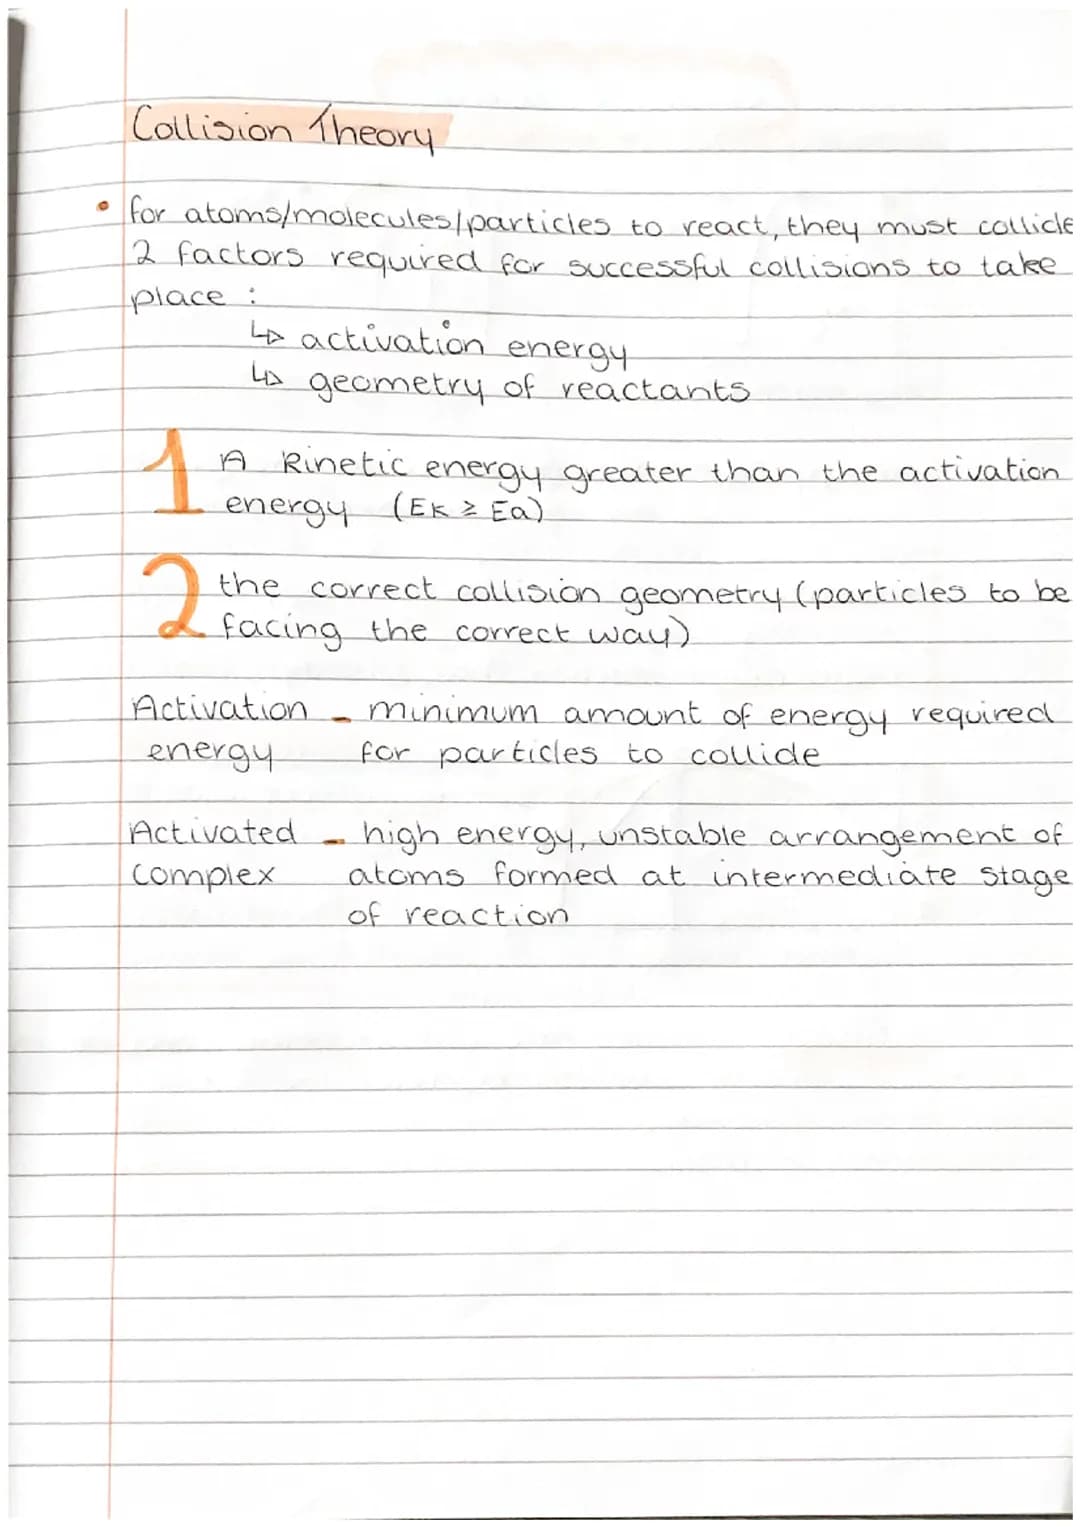 Collision Theory
• for atoms/molecules/particles to react, they must collide
2 factors required for successful collisions to take
place :
↳ activation energy
↳ geometry of reactants
1 A Kinetic energy greater than the activation
energy (Ek ≥ Ea)
2 the correct collision geometry (particles to be
facing the correct way)
Activation - minimum amount of energy required
energy for particles to collide
Activated - high energy, unstable arrangement of
Complex atoms formed at intermediate stage
of reaction